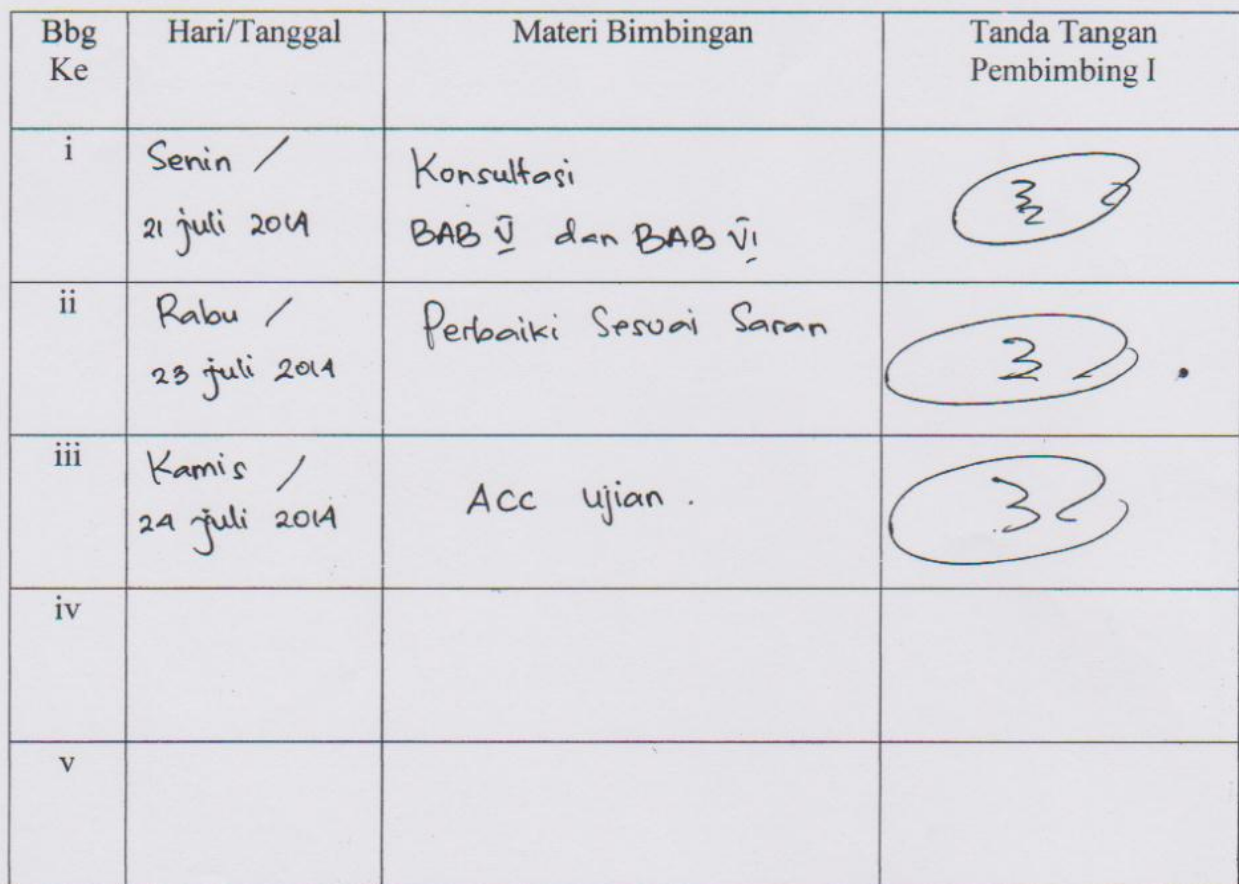 Bbg Ke
Hari/Tanggal
Materi Bimbingan
Tanda Tangan
Pembimbing I
i
Senin /
21 juli 2014
Konsultasi
BAB V dan BAB VI
ii
Rabu /
23 juli 2014
Perbaiki Sesuai Saran
iii
Kamis /
24 juli 2014
ACC ujian .
iv
v